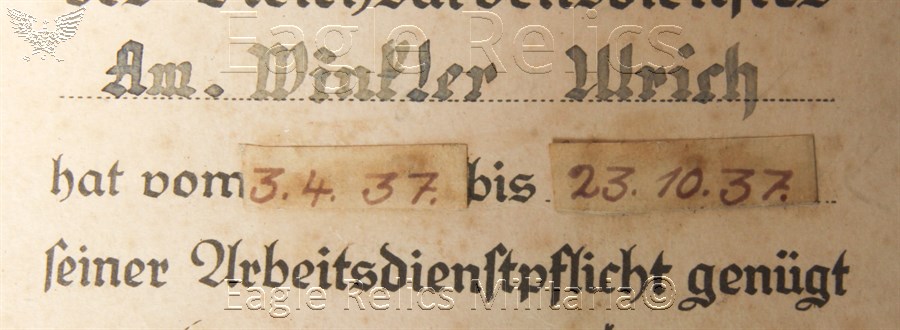 des Reichsarbeitsdienstes
Eagle Relics
Am. Winkler Ulrich
hat vom 3.4.37. bis 23.10.37.
seiner Arbeitsdienstpflicht genügt
Eagle Relics Militaria©